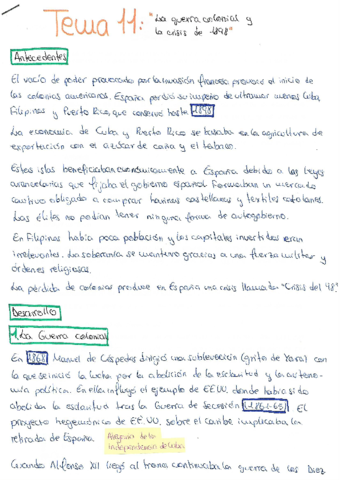 Tema 11: "La guerra colonial y
la crisis de 1898"
Antecedentes
El vacío de poder provocado por la invasión francesa provocó el inicio de
las colonias americanas. España perdió su imperio de ultramar menos Cuba,
Filipinas y Puerto Rico que conservó hasta 1898.
La economía de Cuba y Puerto Rico se basaba en la agricultura de
exportación con el azúcar de caña y el tabaco.
Estas islas beneficiaban económicamente a España debido a las leyes
arancelarias que fijaba el gobierno español. Formaban un mercado
cautivo obligado a comprar harinas castellanas y textiles catalanes.
Las élites no podían tener ninguna forma de autogobierno.
En Filipinas había poca población y los capitales invertidos eran
irrelevantes. La soberanía se mantuvo gracias a una fuerza militar y
órdenes religiosas.
La pérdida de colonias produce en España una crisis llamada "Crisis del 98".
Desarrollo
1. La Guerra colonial
En 1868 Manuel de Céspedes dirigió una sublevación (grito de Yara) con
la que se inició la lucha por la abolición de la esclavitud y la autono-
mía política. En ella influyó el ejemplo de EEUU, donde había sido
abolida la esclavitud tras la Guerra de Secesión (1861-65). El
proyecto hegemónico de EEUU. sobre el Caribe implicaba la
retirada de España.
independencia de Cuba
Cuando Alfonso XII llegó al trono continuaba la guerra de los Diez